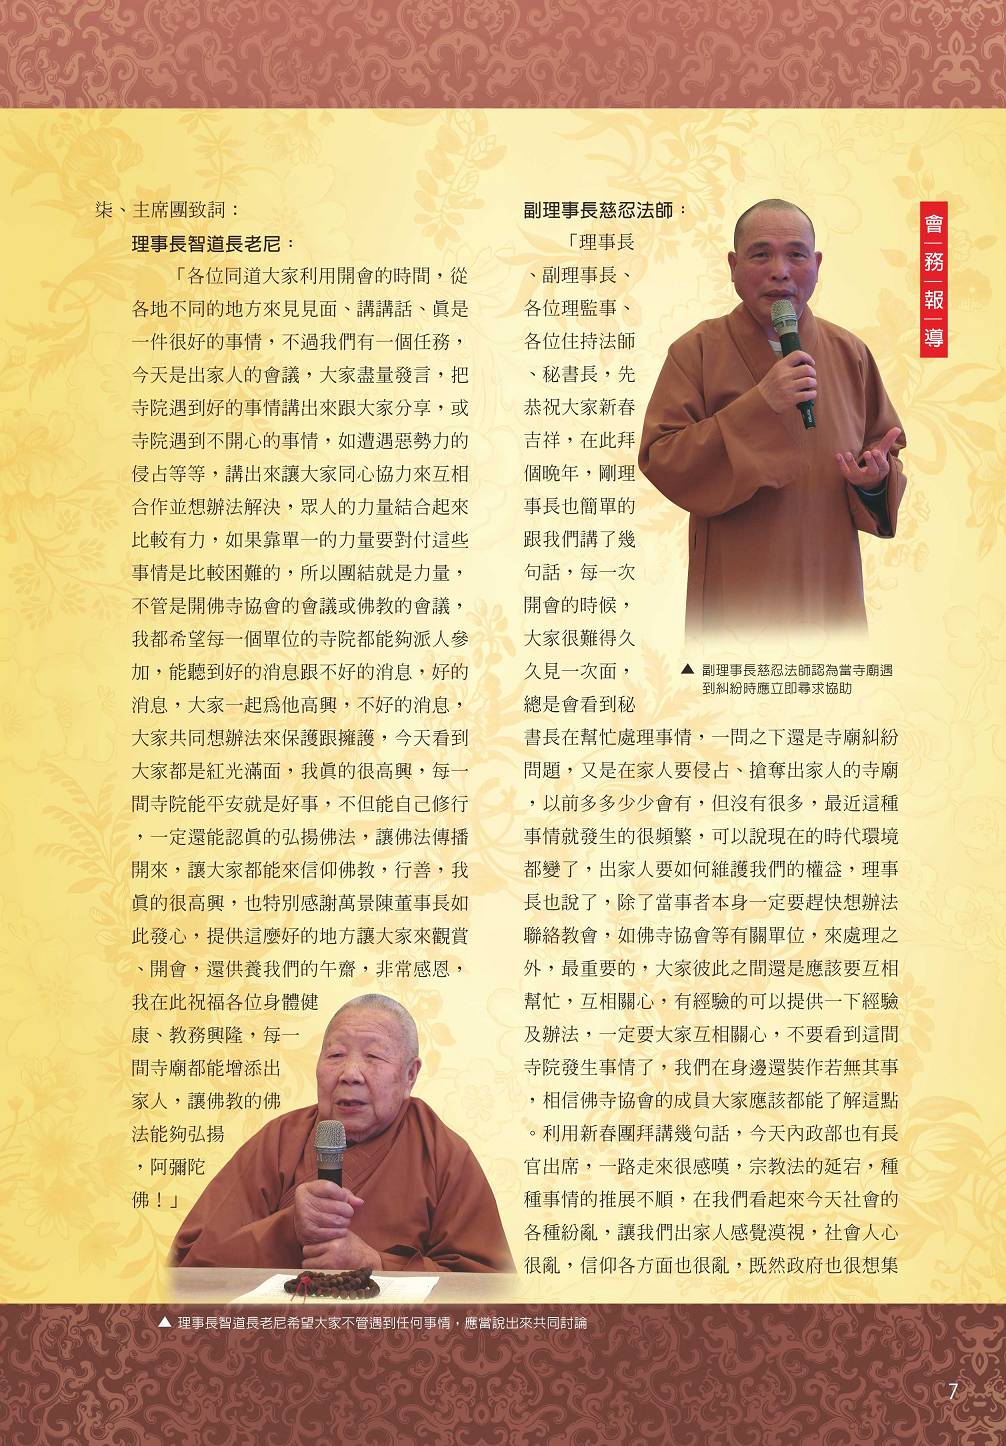 柒、主席團致詞：
理事長智道長老尼：
「各位同道大家利用開會的時間，從
各地不同的地方來見見面、講講話、真是
一件很好的事情，不過我們有一個任務，
今天是出家人的會議，大家盡量發言，把
寺院遇到好的事情講出來跟大家分享，或
寺院遇到不開心的事情，如遭遇惡勢力的
侵占等等，講出來讓大家同心協力來互相
合作並想辦法解決，眾人的力量結合起來
比較有力，如果靠單一的力量要對付這些
事情是比較困難的，所以團結就是力量，
不管是開佛寺協會的會議或佛教的會議，
我都希望每一個單位的寺院都能夠派人參
加，能聽到好的消息跟不好的消息，好的
消息，大家一起為他高興，不好的消息，
大家共同想辦法來保護跟擁護，今天看到
大家都是紅光滿面，我真的很高興，每一
間寺院能平安就是好事，不但能自己修行
，一定還能認真的弘揚佛法，讓佛法傳播
開來，讓大家都能來信仰佛教，行善，我
真的很高興，也特別感謝萬景陳董事長如
此發心，提供這麼好的地方讓大家來觀賞
、開會，還供養我們的午齋，非常感恩，
我在此祝福各位身體健
康、教務興隆，每一
間寺廟都能增添出
家人，讓佛教的佛
法能夠弘揚
，阿彌陀
佛！」
▲ 理事長智道長老尼希望大家不管遇到任何事情，應當說出來共同討論
副理事長慈忍法師：
「理事長
、副理事長、
各位理監事、
各位住持法師
、秘書長，先
恭祝大家新春
吉祥，在此拜
個晚年，剛理
事長也簡單的
跟我們講了幾
句話，每一次
開會的時候，
大家很難得久
久見一次面，
總是會看到秘
書長在幫忙處理事情，一問之下還是寺廟糾紛
問題，又是在家人要侵占、搶奪出家人的寺廟
，以前多多少少會有，但沒有很多，最近這種
事情就發生的很頻繁，可以說現在的時代環境
都變了，出家人要如何維護我們的權益，理事
長也說了，除了當事者本身一定要趕快想辦法
聯絡教會，如佛寺協會等有關單位，來處理之
外，最重要的，大家彼此之間還是應該要互相
幫忙，互相關心，有經驗的可以提供一下經驗
及辦法，一定要大家互相關心，不要看到這間
寺院發生事情了，我們在身邊還裝作若無其事
，相信佛寺協會的成員大家應該都能了解這點
。利用新春團拜講幾句話，今天內政部也有長
官出席，一路走來很感嘆，宗教法的延宕，種
種事情的推展不順，在我們看起來今天社會的
各種紛亂，讓我們出家人感覺漠視，社會人心
很亂，信仰各方面也很亂，既然政府也很想集
▲ 副理事長慈忍法師認為當寺廟遇
到糾紛時應立即尋求協助
會務報導
7